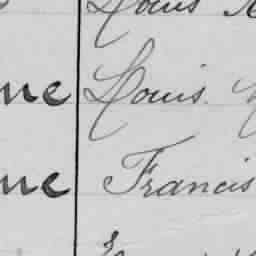 Louis
me Louis
me Francis